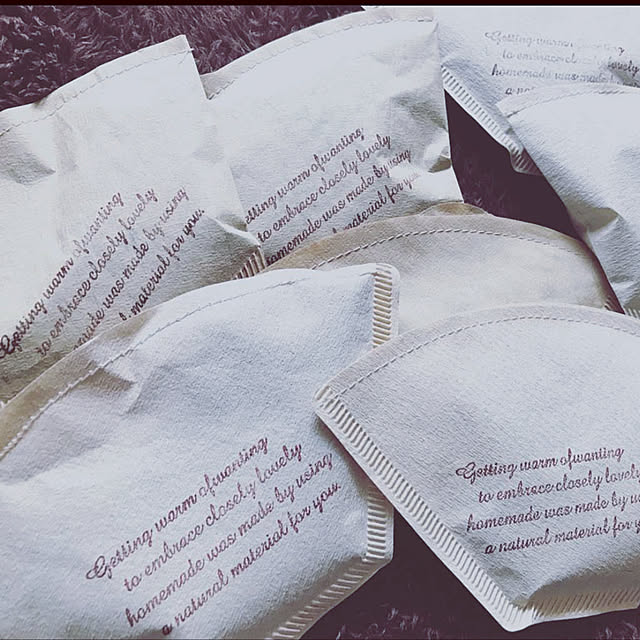 Getting warm ofwanting
to embrace closely lovely
homemade was m
a na
Getting warm ofwanting
to embrace closely lovely
homemade was made by using
material for you.
Getting warm ofwanting
to embrace closely lovely
made was made by using
material for you.
Getting warm ofwanting
to embrace closely lovely
homemade was made by using
a natural material for you.
Getting warm ofwanting
to embrace closely lovely
homemade was made by us
a natural material for y